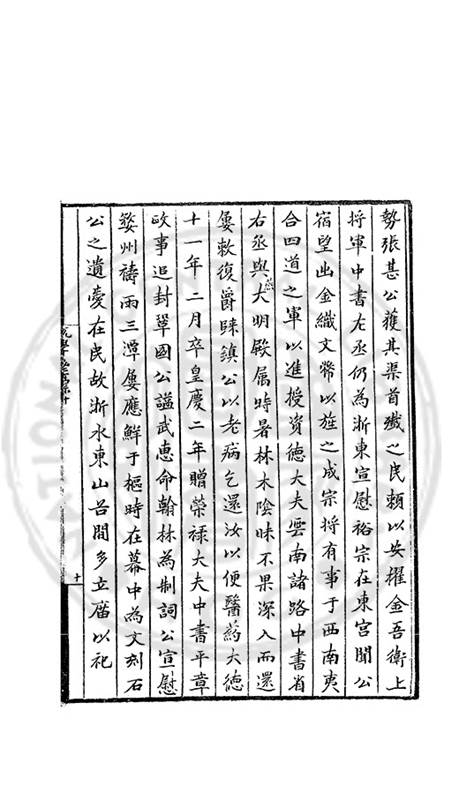 勢張甚公獲其渠首殱之民賴以安擢金吾衛上
將軍中書左丞仍為浙東宣慰裕宗在東宮聞公
宿望出金織文幣以旌之成宗將有事于西南夷
合四道之軍以進授資德大夫雲南諸路中書省
右丞與大明殿燕屬時暑林木陰昧不果深入而還
屢敕復爵睞鎮公以老病乞還汝以便醫藥大德
十一年二月卒皇慶二年贈榮禄大夫中書平章
政事追封鞏國公謚武惠命翰林為制詞公宣慰
婺州禱雨三潭屢應鮮于樞時在幕中為文刻石
公之遺愛在民故浙水東山谷間多立廟以祀
十